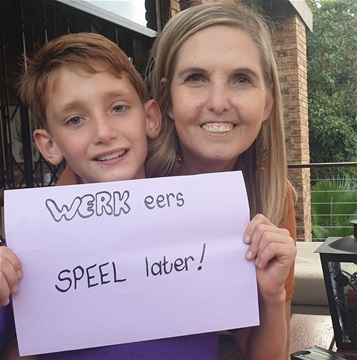 WERK eers
SPEEL later!